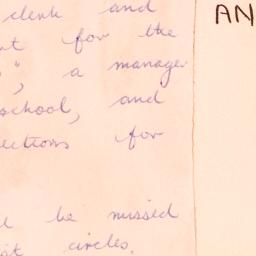 clerk and AN
for the
", a manager
school, and
for
be missed
circles.